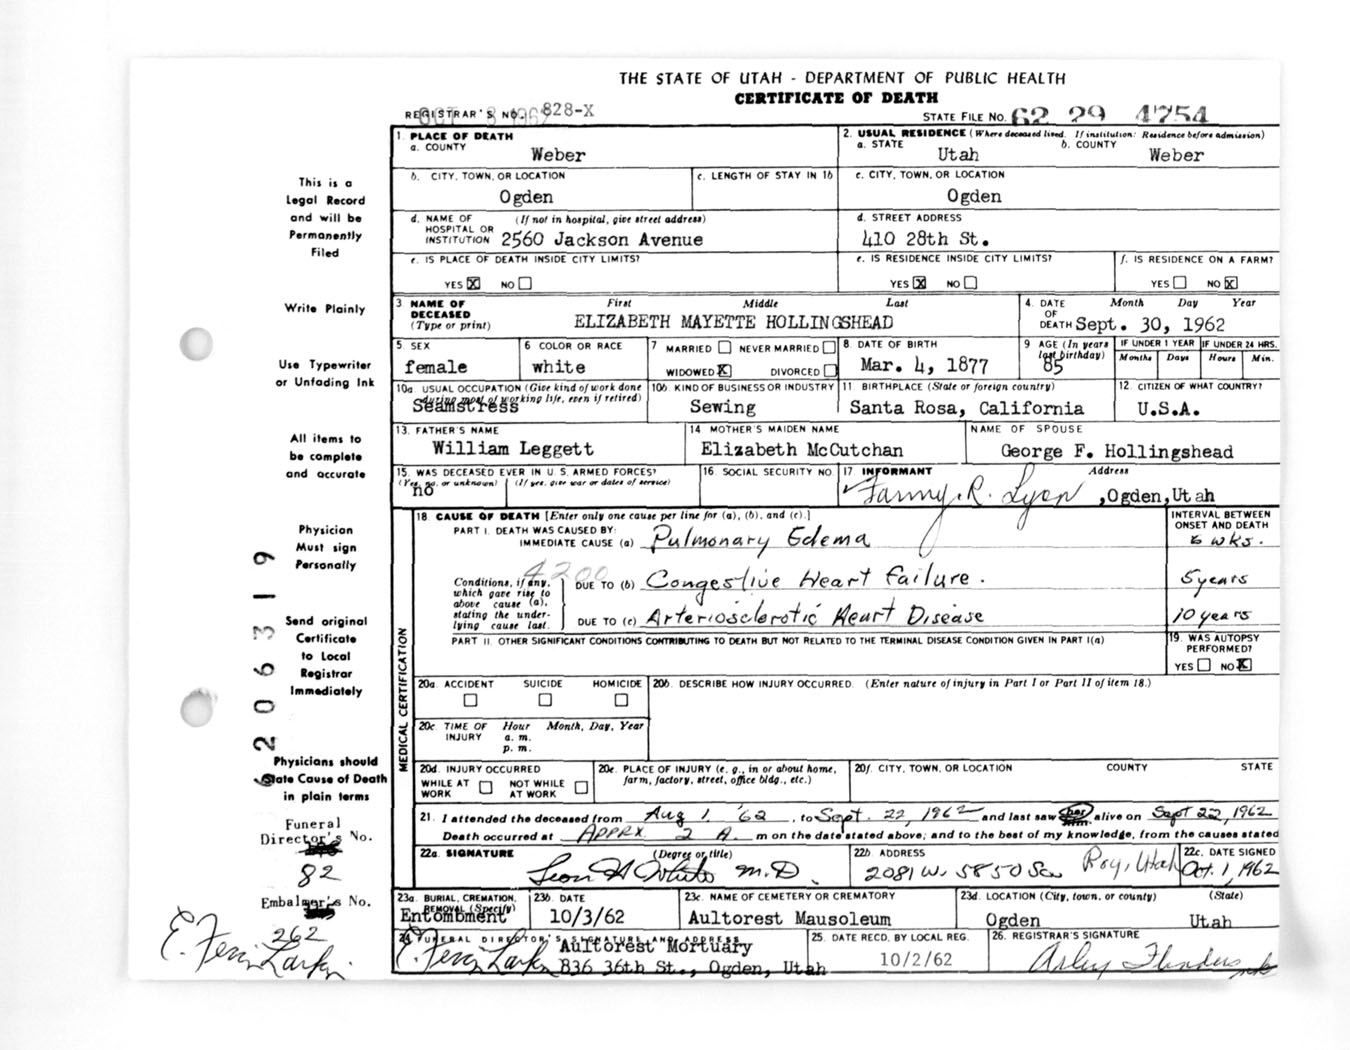 THE STATE OF UTAH - DEPARTMENT OF PUBLIC HEALTH
CERTIFICATE OF DEATH
REGISTRAR'S NO. 828-X
STATE FILE NO. 62 29 4754
1. PLACE OF DEATH
a. COUNTY
Weber
2. USUAL RESIDENCE (Where deceased lived. If institution: Residence before admission)
a. STATE
Utah
b. COUNTY
Weber
b. CITY, TOWN, OR LOCATION
Ogden
c. LENGTH OF STAY IN 1b
c. CITY, TOWN, OR LOCATION
Ogden
d. NAME OF HOSPITAL OR INSTITUTION (If not in hospital, give street address)
2560 Jackson Avenue
d. STREET ADDRESS
410 28th St.
e. IS PLACE OF DEATH INSIDE CITY LIMITS?
YES X NO
e. IS RESIDENCE INSIDE CITY LIMITS?
YES X NO
f. IS RESIDENCE ON A FARM?
YES NO X
3 NAME OF DECEASED (Type or print)
First Middle Last
ELIZABETH MAYETTE HOLLINGSHEAD
4. DATE OF DEATH Month Day Year
Sept. 30, 1962
5. SEX
female
6 COLOR OR RACE
white
7 MARRIED NEVER MARRIED
WIDOWED X DIVORCED
8 DATE OF BIRTH
Mar. 4, 1877
9 AGE (In years last birthday)
85
IF UNDER 1 YEAR
Months Days
IF UNDER 24 HRS.
Hours Min.
10a. USUAL OCCUPATION (Give kind of work done during most of working life, even if retired)
Seamstress
10b. KIND OF BUSINESS OR INDUSTRY
Sewing
11. BIRTHPLACE (State or foreign country)
Santa Rosa, California
12. CITIZEN OF WHAT COUNTRY?
U.S.A.
13. FATHER'S NAME
William Leggett
14 MOTHER'S MAIDEN NAME
Elizabeth McCutchan
NAME OF SPOUSE
George F. Hollingshead
15. WAS DECEASED EVER IN U. S. ARMED FORCES?
(Yes, no, or unknown) (If yes, give war or dates of service)
no
16. SOCIAL SECURITY NO
17 INFORMANT Address
Fanny R. Lyon ,Ogden,Utah
18. CAUSE OF DEATH [Enter only one cause per line for (a), (b), and (c).]
PART I. DEATH WAS CAUSED BY:
IMMEDIATE CAUSE (a) Pulmonary Edema
INTERVAL BETWEEN ONSET AND DEATH
6 wks.
4200
Conditions, if any, which gave rise to above cause (a), stating the underlying cause last.
DUE TO (b) Congestive Heart Failure.
5 years
DUE TO (c) Arteriosclerotic Heart Disease
10 years
PART II. OTHER SIGNIFICANT CONDITIONS CONTRIBUTING TO DEATH BUT NOT RELATED TO THE TERMINAL DISEASE CONDITION GIVEN IN PART I(a)
19. WAS AUTOPSY PERFORMED?
YES NO X
MEDICAL CERTIFICATION
20a. ACCIDENT SUICIDE HOMICIDE
20b. DESCRIBE HOW INJURY OCCURRED. (Enter nature of injury in Part I or Part II of item 18.)
20c. TIME OF INJURY Hour Month, Day, Year
a. m.
p. m.
20d. INJURY OCCURRED
WHILE AT WORK NOT WHILE AT WORK
20e. PLACE OF INJURY (e. g., in or about home, farm, factory, street, office bldg., etc.)
20f. CITY, TOWN, OR LOCATION COUNTY STATE
21. I attended the deceased from Aug 1, '62, to Sept. 22, 1962 and last saw her alive on Sept 22, 1962
Death occurred at Apprx. 2 A. m on the date stated above; and to the best of my knowledge, from the causes stated
22a. SIGNATURE (Degree or title)
Leon H White M.D.
22b. ADDRESS
2081 W. 5850 So Roy, Utah
22c. DATE SIGNED
Oct. 1, 1962
23a. BURIAL, CREMATION, REMOVAL (Specify)
Entombment
23b. DATE
10/3/62
23c. NAME OF CEMETERY OR CREMATORY
Aultorest Mausoleum
23d. LOCATION (City, town, or county) (State)
Ogden Utah
24. FUNERAL DIRECTOR'S SIGNATURE AND ADDRESS
Aultorest Mortuary
836 36th St., Ogden, Utah
25. DATE RECD. BY LOCAL REG.
10/2/62
26. REGISTRAR'S SIGNATURE
This is a
Legal Record
and will be
Permanently
Filed
Write Plainly
Use Typewriter
or Unfading Ink
All items to
be complete
and accurate
Physician
Must sign
Personally
Send original
Certificate
to Local
Registrar
Immediately
Physicians should
State Cause of Death
in plain terms
Funeral
Director's No.
82
Embalmer's No.
262